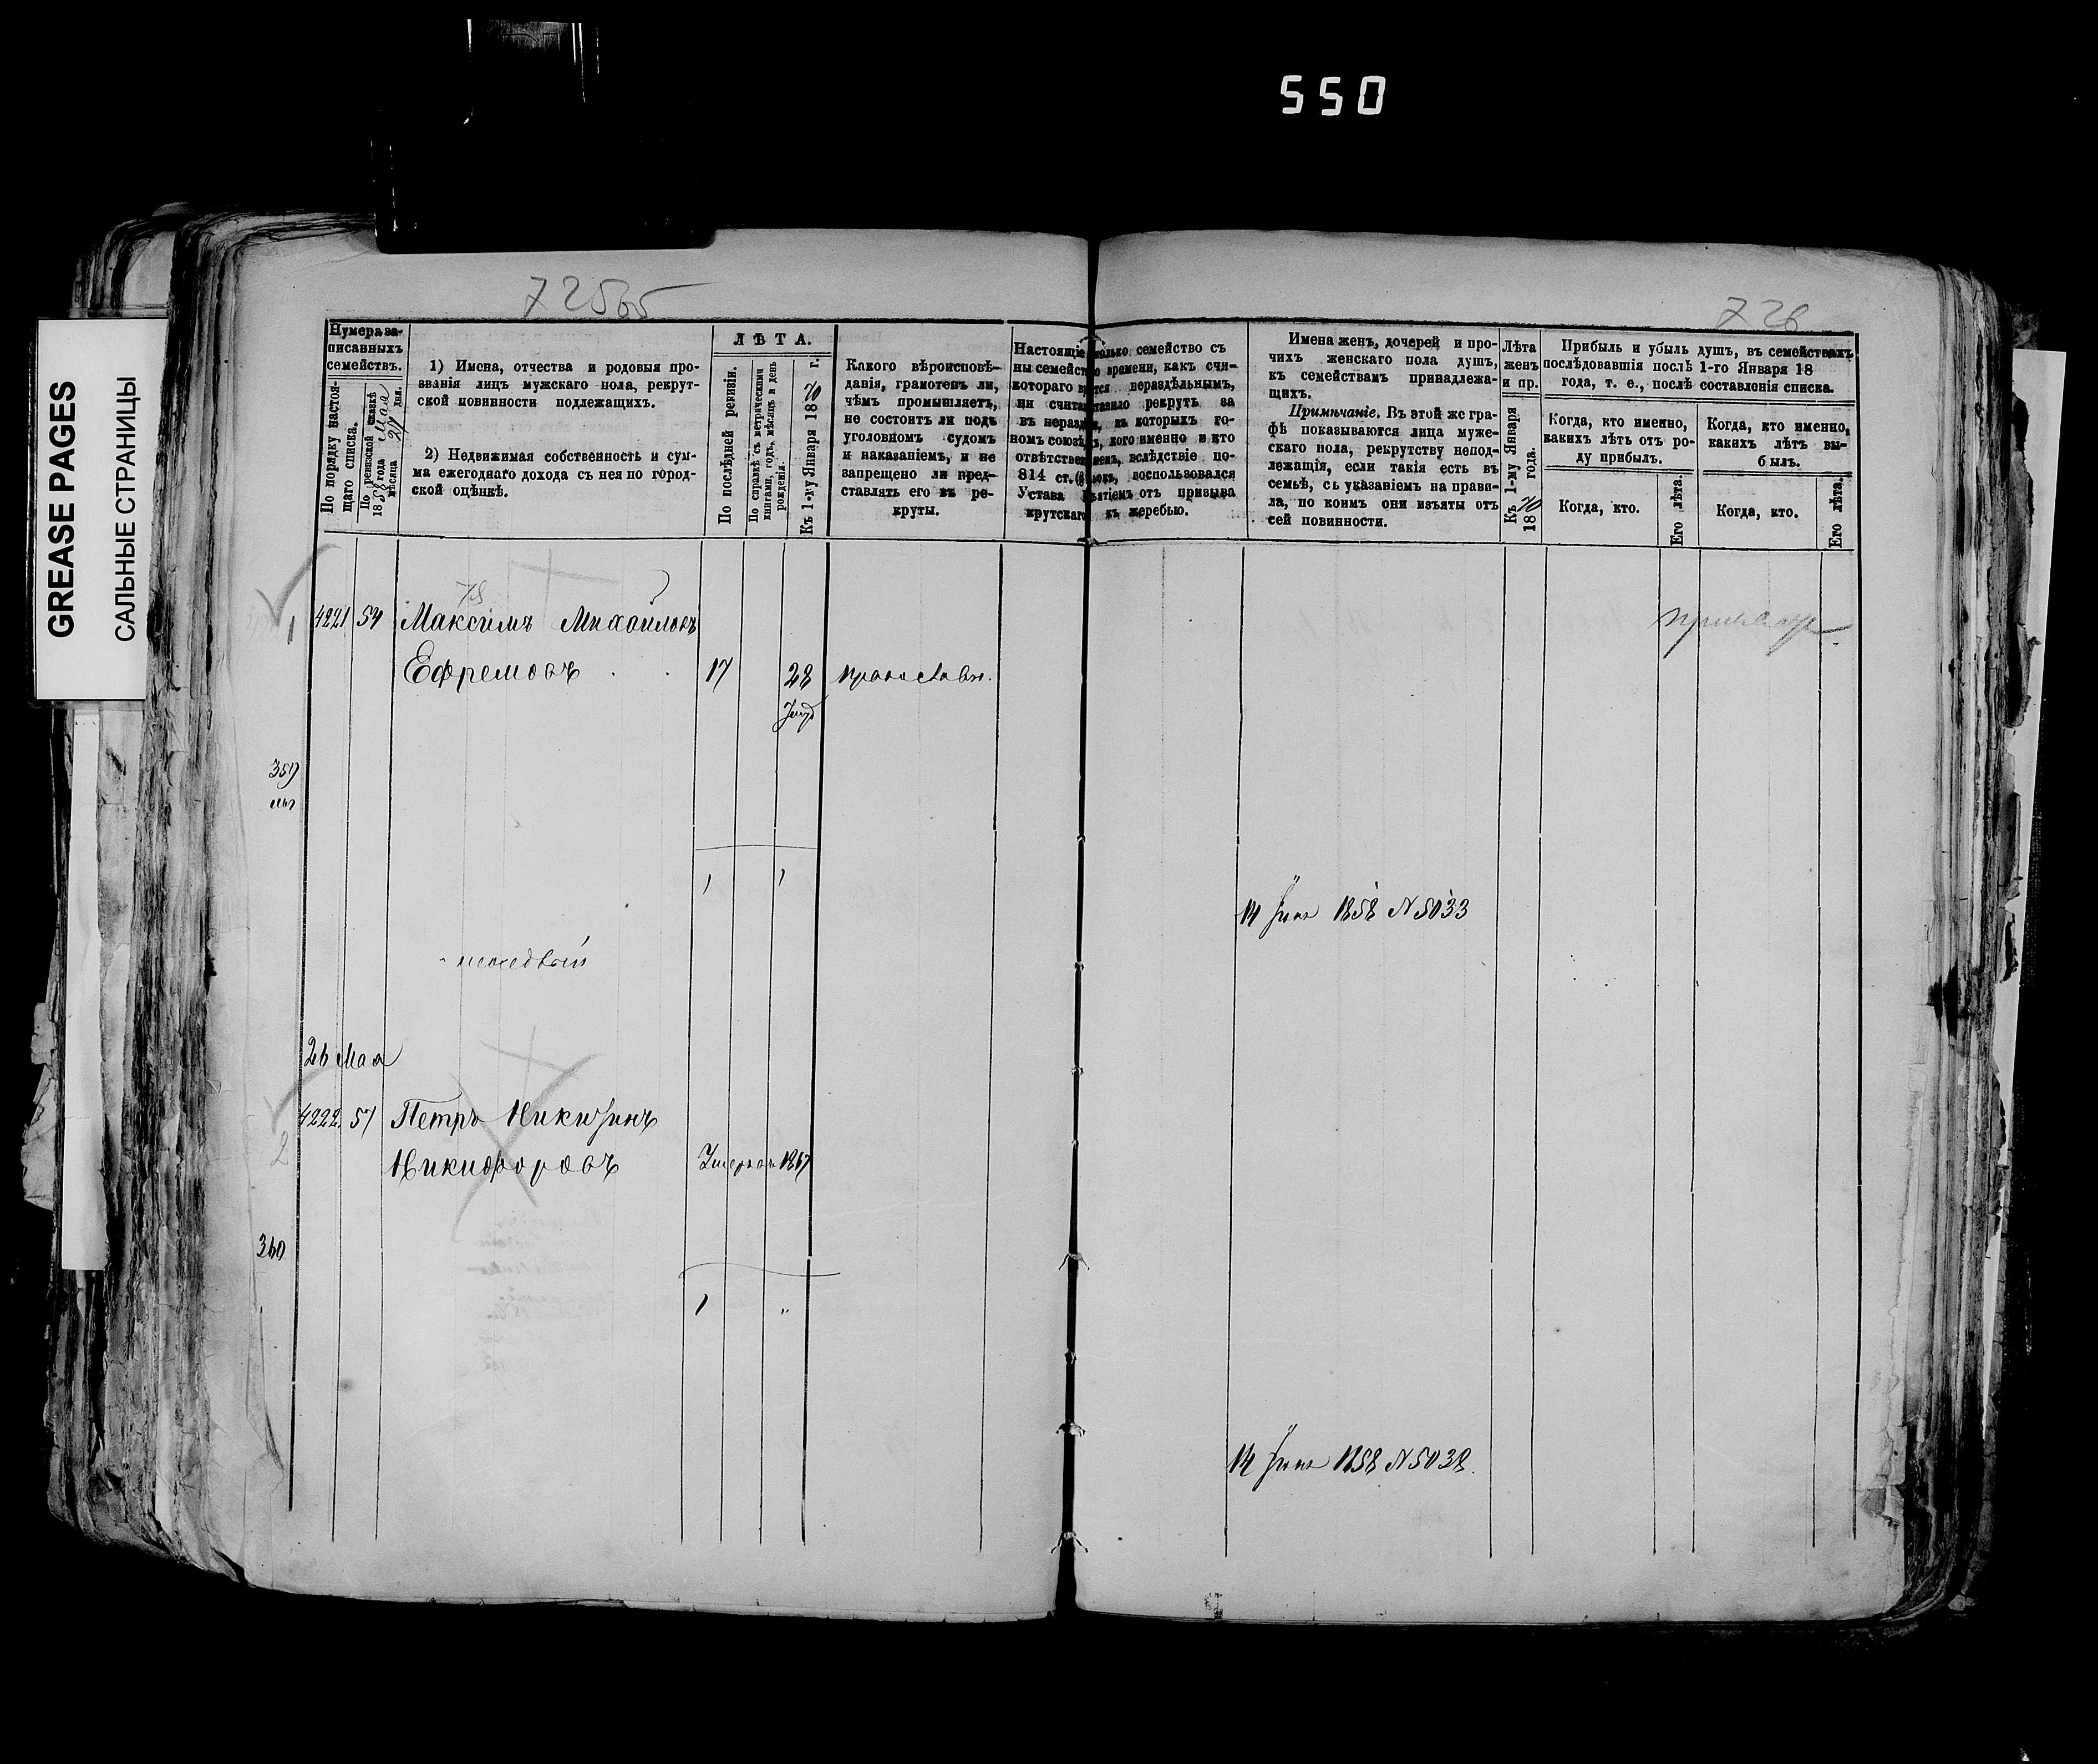 550
GREASE PAGES
САЛЬНЫЕ СТРАНИЦЫ
725об
726
Нумера за-
писанныхъ
семействъ.
По порядку настоя-
щаго списка.
По ревизской сказкѣ
1858 года Мая
мѣсяца 24 дня.
1) Имена, отчества и родовыя про-
званія лицъ мужскаго пола, рекрут-
ской повинности подлежащихъ.
2) Недвижимая собственность и сум-
ма ежегоднаго дохода съ нея по город-
ской оцѣнкѣ.
ЛѢТА.
По послѣдней ревизіи.
По справкѣ съ метрическими
книгами, годъ, мѣсяцъ и день
рожденія.
Къ 1-му Января 1870 г.
Какого вѣроисповѣ-
данія, грамотенъ ли,
чѣмъ промышляетъ,
не состоитъ ли подъ
уголовнымъ судомъ
и наказаніемъ, и не
запрещено ли пред-
ставлять его въ ре-
круты.
Настоящіе
ны семейст
котораго в
ни счита
въ неразд
номъ союзѣ
отвѣтстве
814 ст.
Устава
крутскаго
семейство съ
времени, какъ счи-
нераздѣльнымъ,
рекрутъ за
которыхъ го-
кого именно и кто
вслѣдствіе
воспользовался
отъ призыва
къ жеребью.
Имена женъ, дочерей и про-
чихъ женскаго пола душъ,
къ семействамъ принадлежа-
щихъ.
Примѣчаніе. Въ этой же гра-
фѣ показываются лица муже-
скаго пола, рекрутству непод-
лежащія, если такія есть въ
семьѣ, съ указаніемъ на прави-
ла, по коимъ они изъяты отъ
сей повинности.
Лѣта
женъ
и пр.
Къ 1-му Января
1870 года.
Прибыль и убыль душъ, въ семействахъ
послѣдовавшія послѣ 1-го Января 18
года, т. е., послѣ составленія списка.
Когда, кто именно,
какихъ лѣтъ отъ ро-
ду прибылъ.
Когда, кто именно,
какихъ лѣтъ вы-
былъ.
Когда, кто.
Его лѣта.
Когда, кто.
Его лѣта.
78
1 4221 54 Максимъ Михайловъ
Ефремовъ 17 28 православн.
359
1 1
14 Іюня 1858 N 5033
26 Мая
4222 57 Петръ Никитинъ
2 Никифоровъ Умеръ 1867
360
1 "
14 Іюня 1858 N 5038.